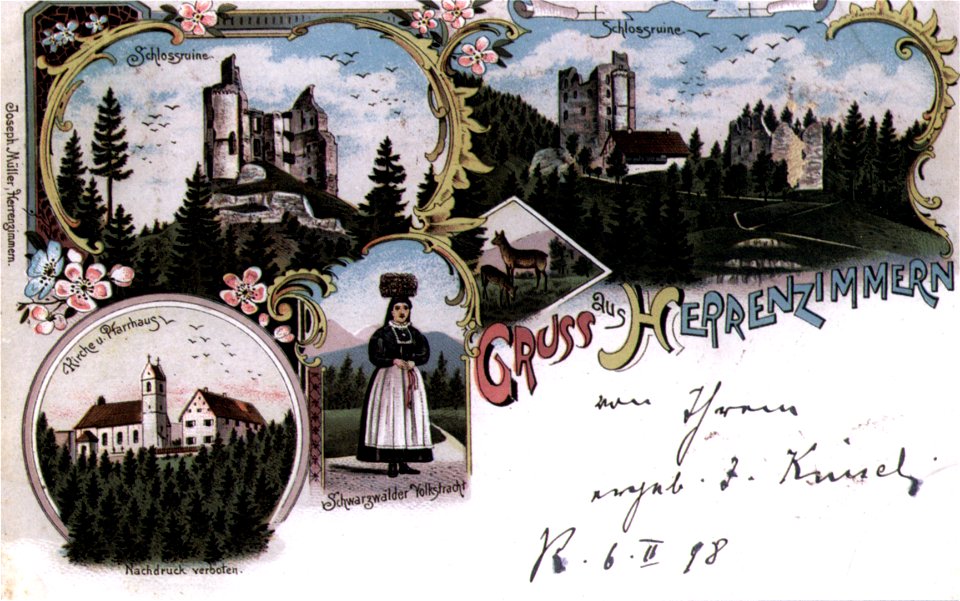 Schlossruine.
Schlossruine.
Joseph Müller, Herrenzimmern.
Kirche u. Pfarrhaus
Schwarzwälder Volkstracht
Nachdruck verboten.
GRUSS aus HERRENZIMMERN
von Ihrem
ergeb. J.
R. 6. II 98